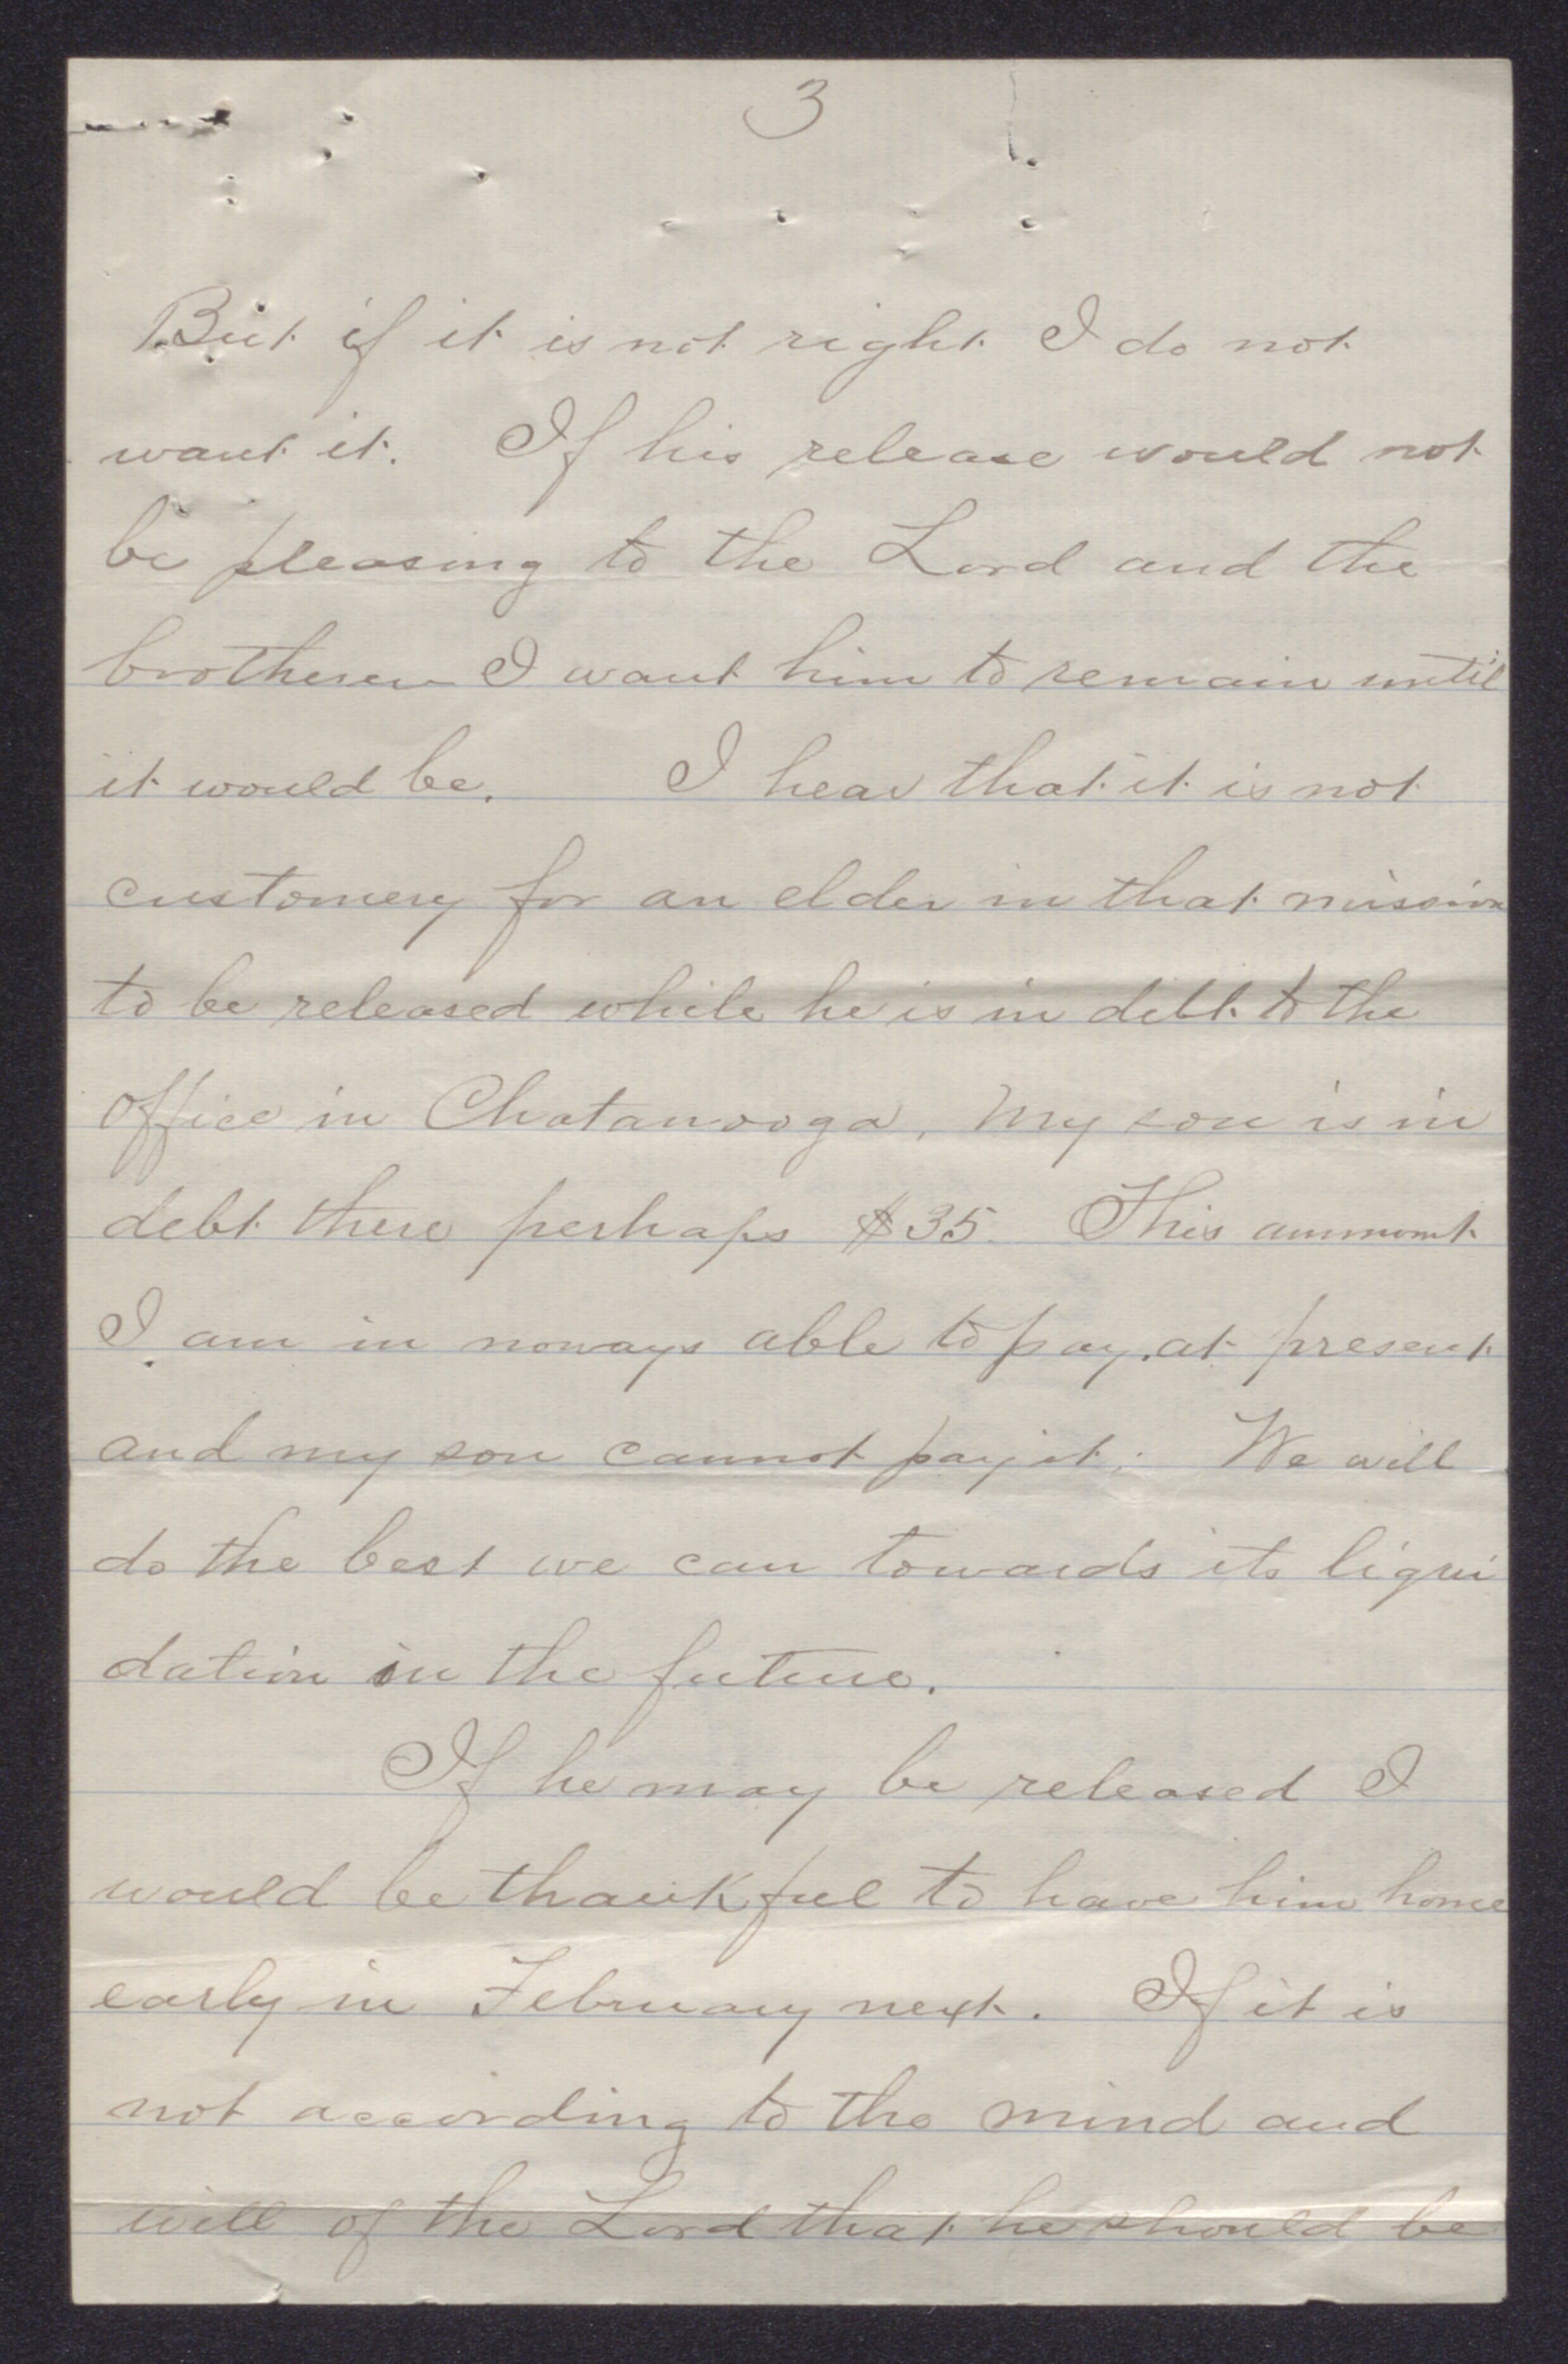 3
But if it is not right I do not
want it. If his release would not
be pleasing to the Lord and the
brotheren I want him to remain until
it would be. I hear that it is not
customery for an elder in that mission
to be released while he is in debt to the
office in Chatanooga, My son is in
debt there perhaps $35. This ammomt
I am in noways able to pay. at present
and my son cannot pay it. We will
do the best we can towards its liqui
dation in the future.
If he may be released I
would be thankful to have him home
early in February next. If it is
not according to the mind and
will of the Lord that he should be